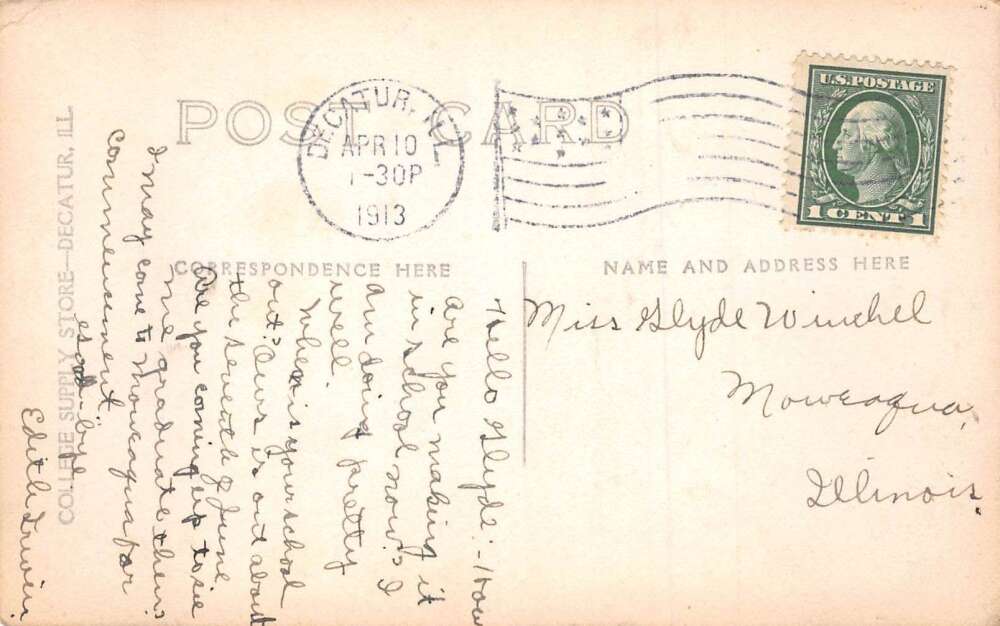 POST CARD
DECATUR, ILL.
APR 10
1-30P
1913
U.S. POSTAGE
1 CENT 1
CORRESPONDENCE HERE
NAME AND ADDRESS HERE
COLLEGE SUPPLY STORE—DECATUR, ILL.
Miss Glyde Winchel
Moweaqua,
Illinois.
Hello Glyde:- How
are you making it
in school now? I
am doing pretty
well.
When is your school
out? Ours is out about
the seventh of June
Are you coming up to see
me graduate then?
I may come to Moweaqua for
commencement.
Good-bye
Edith